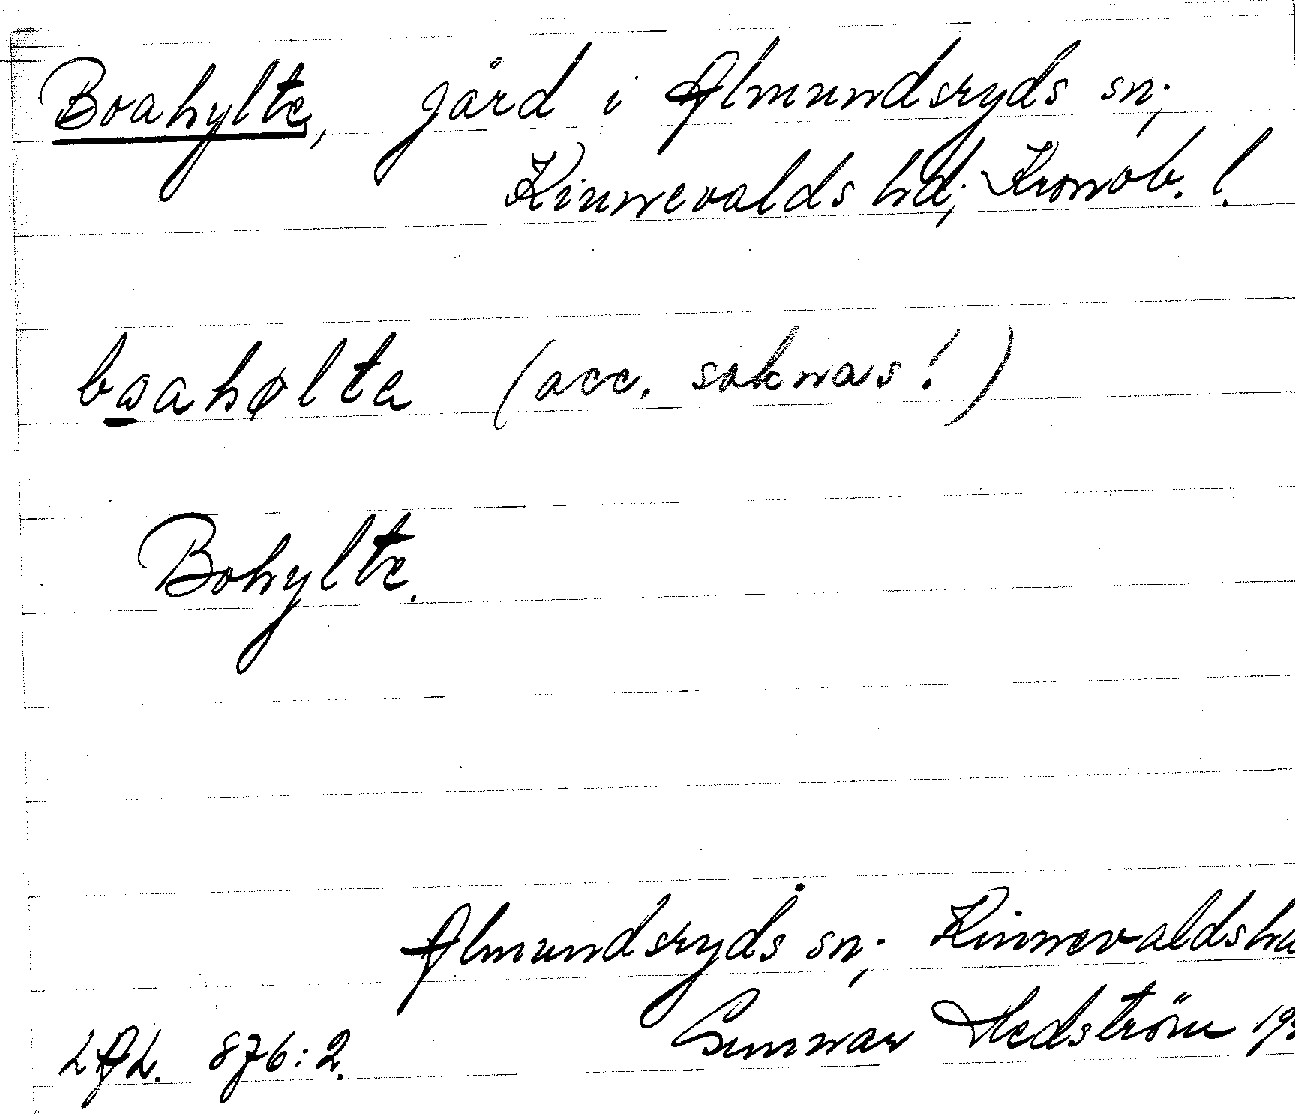 Boahylte, gård i Almundsryds sn;
Kinnevalds hd; Kronob. l.
boahølta (acc. saknas!)
Bohylte.
Almundsryds sn; Kinnevalds
Gunnar Hedström 19
LAL. 876:2.